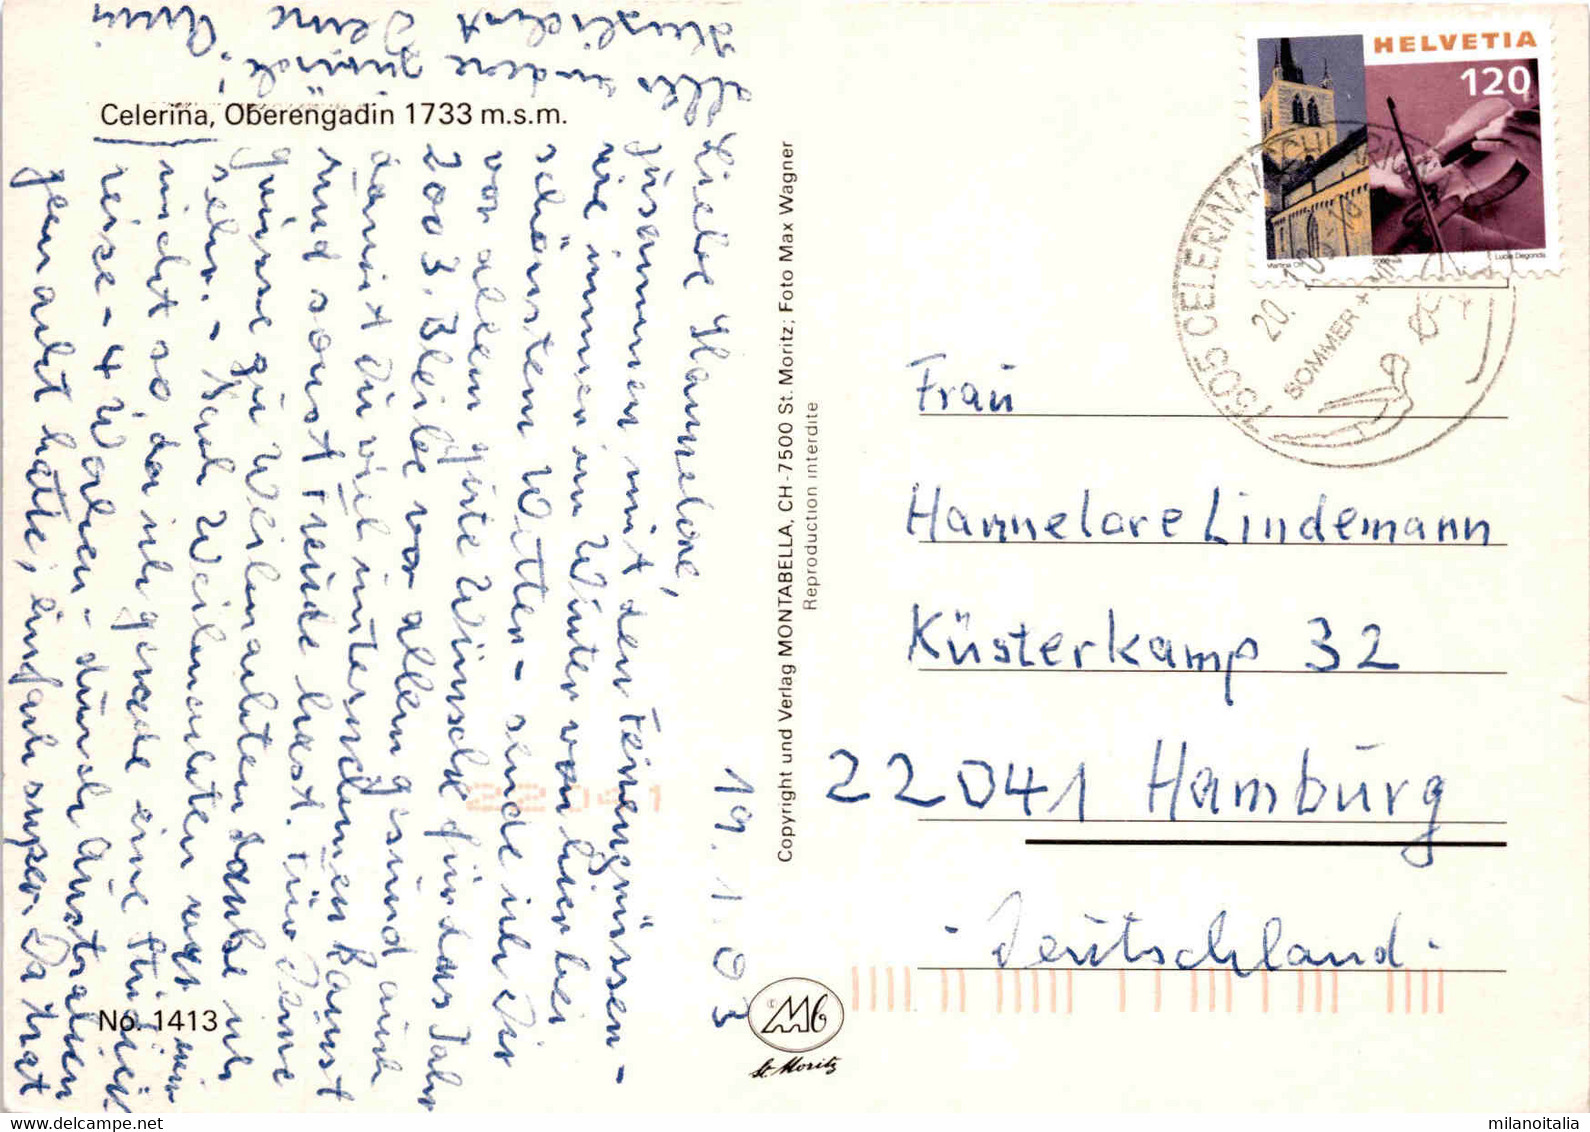 Celerina, Oberengadin 1733 m.s.m.
19.1.03
Liebe Hannelore,
zusammen mit den Feriengrüssen -
wie immer im Winter von hier bei
schönstem Wetter - sende ich Dir
vor allem gute Wünsche für das Jahr
2003. Bleibe vor allem gesund auch
damit Du viel unternehmen kannst
und sonst Freude hast. Für Deine
Grüsse zu Weihnachten danke ich
sehr. - Nach Weihnachten war mir
nicht so, da ich gerade eine
reise - 4 Wochen - durch Australien
gemacht hatte, einfach super. Da trat
alles andere zurück!
Herzlichst Deine
No. 1413
Copyright und Verlag MONTABELLA, CH-7500 St. Moritz; Foto Max Wagner
Reproduction interdite
Mb
St. Moritz
HELVETIA
120
Lucia Degonda
7505 CELERINA/SCHLARIGNA
20.
SOMMER +
Frau
Hannelore Lindemann
Küsterkamp 32
22041 Hamburg
- Deutschland -
22041
milanoitalia